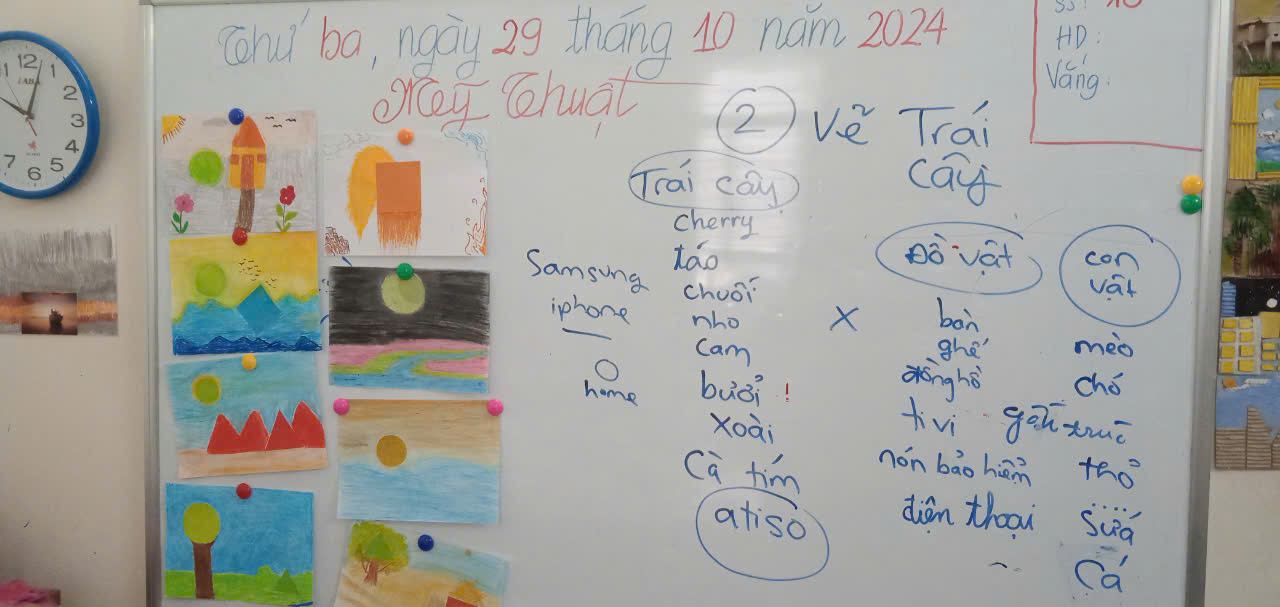 Thứ ba, ngày 29 tháng 10 năm 2024
Mỹ Thuật
SS: 10
HD:
Vắng:
2 Vẽ Trái
Cây
Trái cây
cherry
táo
chuối
nho
cam
bưởi !
xoài
Cà tím
atisô
Samsung
iphone
home
X
Đồ vật
bàn
ghế
đồng hồ
ti vi
nón bảo hiểm
điện thoại
con
vật
mèo
chó
gấu trúc
thỏ
sứa
Cá
12
1
2
3
4
5
6
7
11